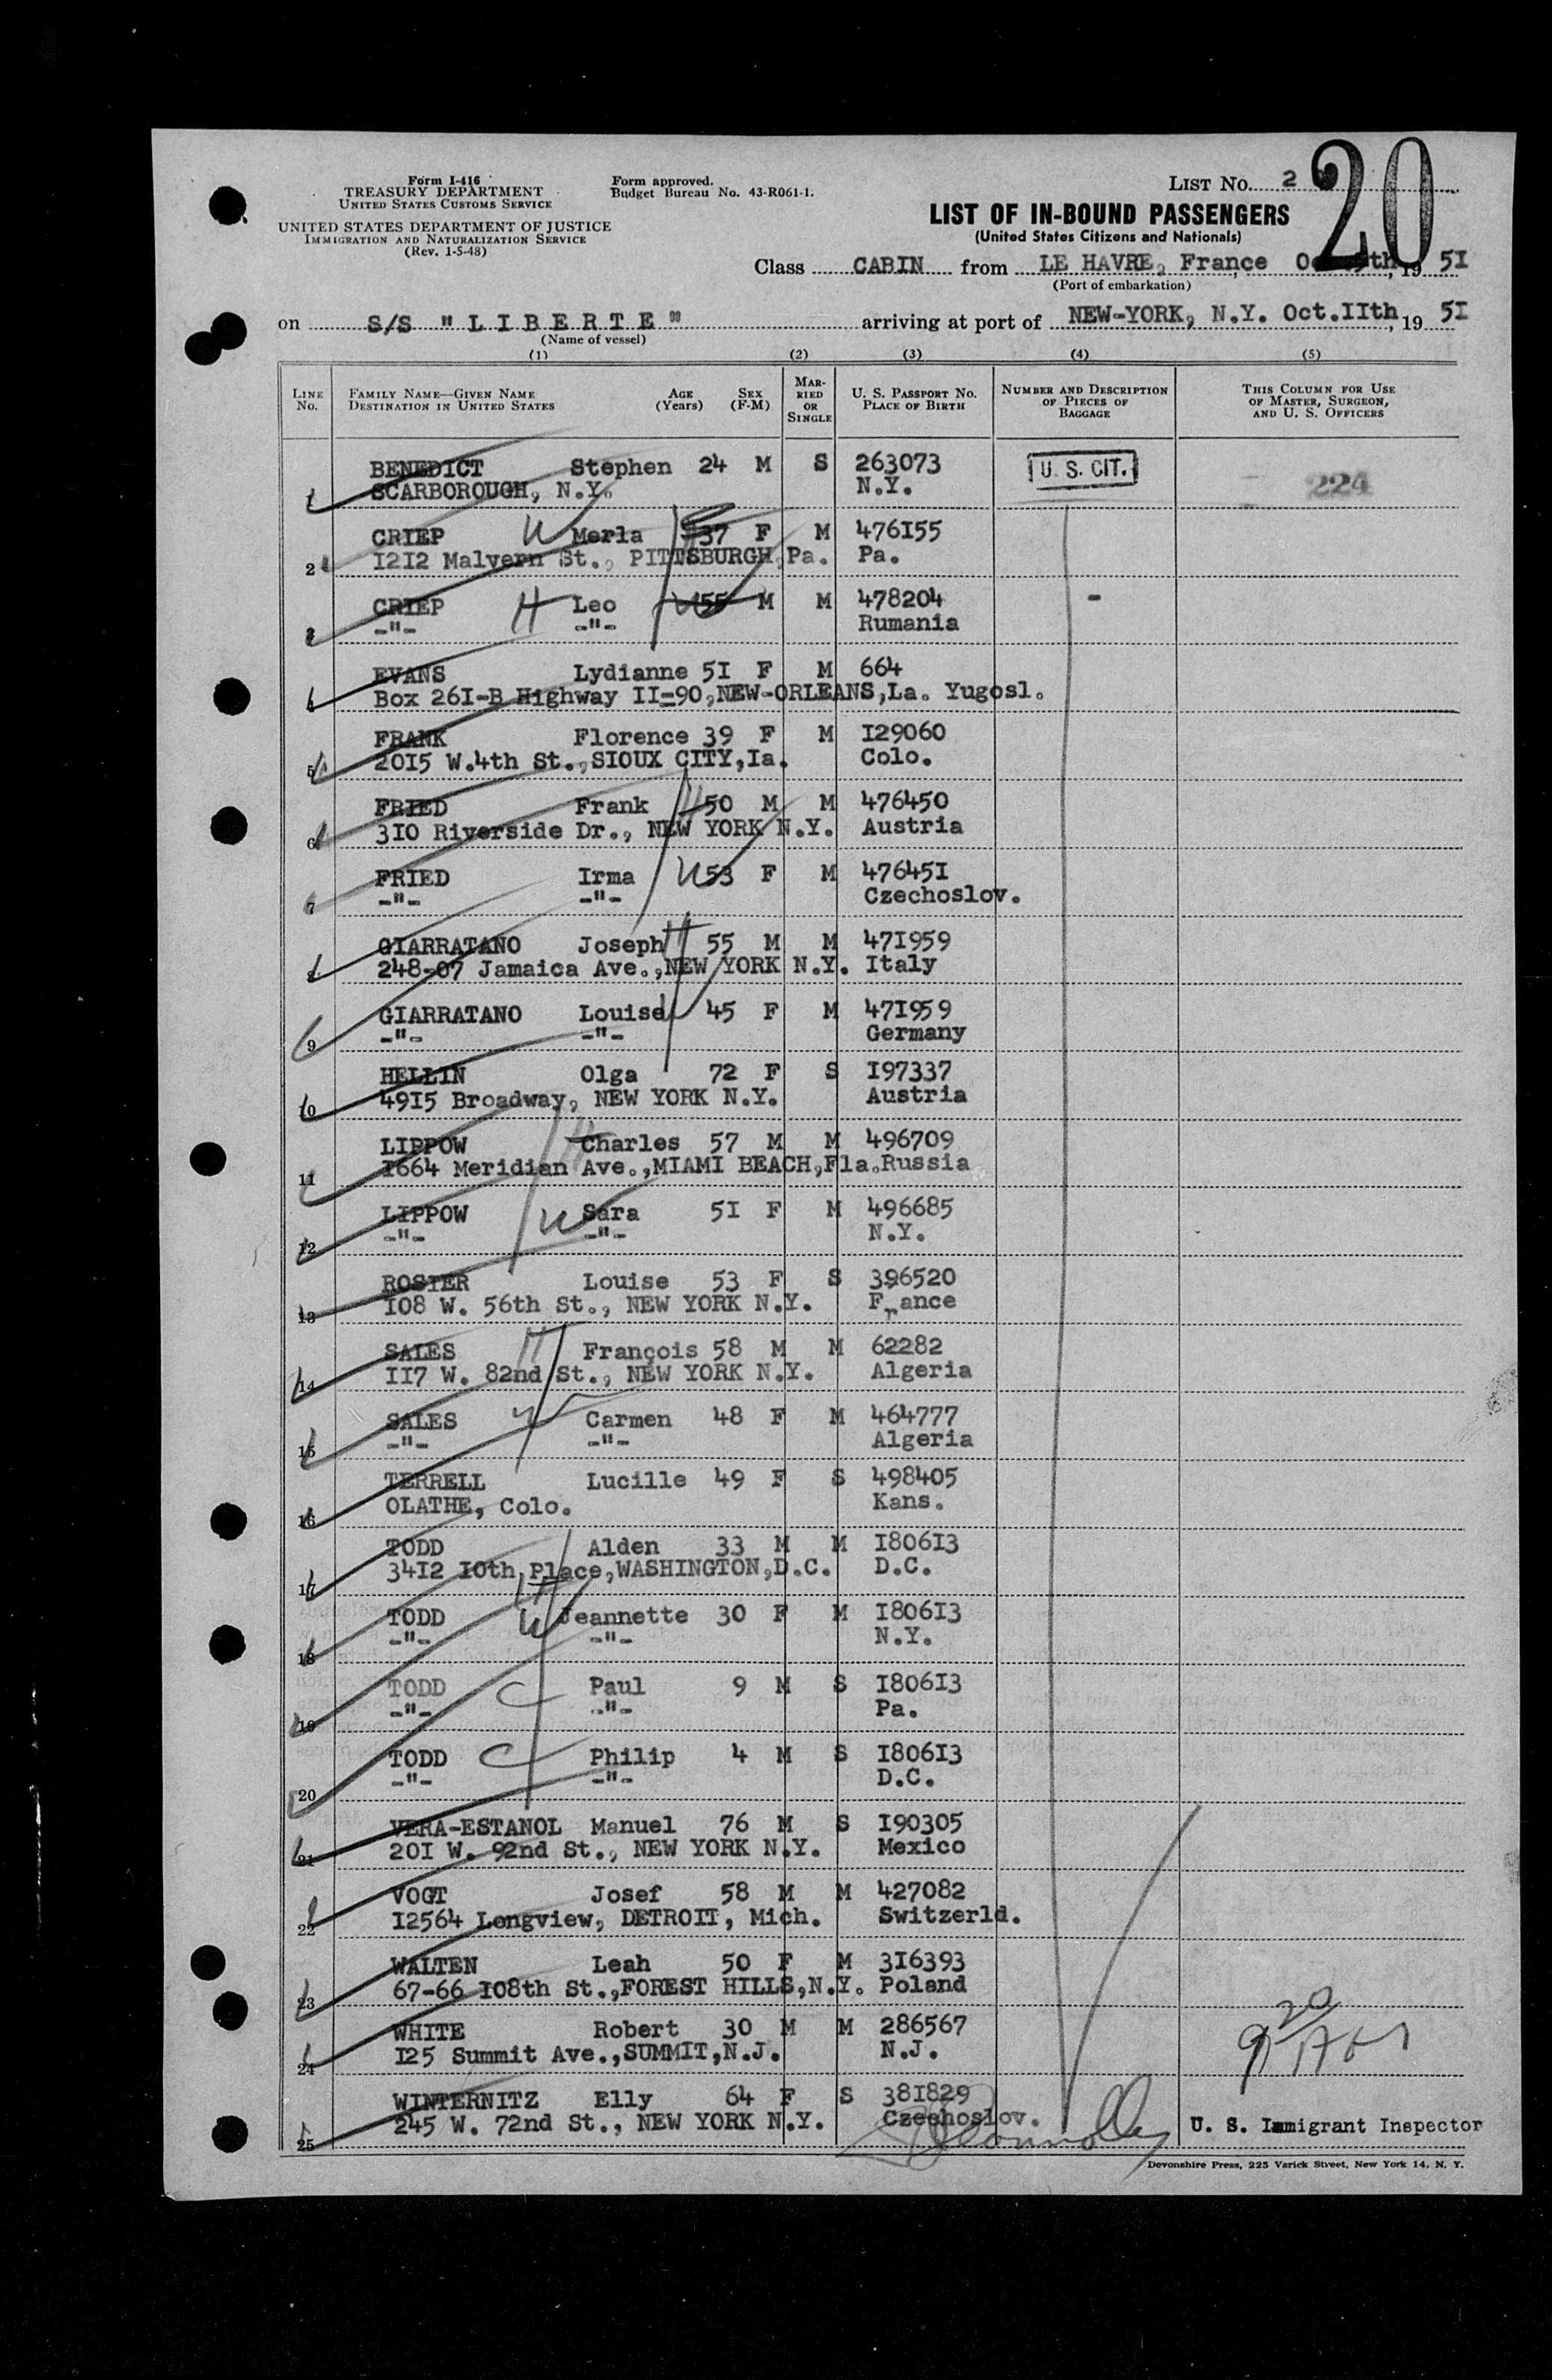 Form I-416
TREASURY DEPARTMENT
UNITED STATES CUSTOMS SERVICE
UNITED STATES DEPARTMENT OF JUSTICE
IMMIGRATION AND NATURALIZATION SERVICE
(Rev. 1-5-48)
Form approved.
Budget Bureau No. 43-R061-1.
LIST NO. 2
20
LIST OF IN-BOUND PASSENGERS
(United States Citizens and Nationals)
Class CABIN from LE HAVRE, France th, 19 5I
(Port of embarkation)
on S/S "LIBERTE" arriving at port of NEW-YORK, N.Y. Oct.IIth, 19 5I
(Name of vessel)
(1) (2) (3) (4) (5)
LINE No. FAMILY NAME—GIVEN NAME DESTINATION IN UNITED STATES AGE (Years) SEX (F-M) MARRIED OR SINGLE U. S. PASSPORT NO. PLACE OF BIRTH NUMBER AND DESCRIPTION OF PIECES OF BAGGAGE THIS COLUMN FOR USE OF MASTER, SURGEON, AND U. S. OFFICERS
1 BENEDICT Stephen 24 M S 263073 U. S. CIT. 224
SCARBOROUGH, N.Y. N.Y.
2 CRIEP W Merla 37 F M 476I55
I2I2 Malvern St., PITTSBURGH, Pa. Pa.
3 CRIEP H Leo 55 M M 478204 -
-"- -"- Rumania
4 EVANS Lydianne 5I F M 664
Box 26I-B Highway II=90, NEW-ORLEANS, La. Yugosl.
5 FRANK Florence 39 F M I29060
20I5 W.4th St., SIOUX CITY, Ia. Colo.
6 FRIED Frank H 50 M M 476450
3I0 Riverside Dr., NEW YORK N.Y. Austria
7 FRIED Irma W 53 F M 47645I
-"- -"- Czechoslov.
8 GIARRATANO Joseph H 55 M M 47I959
248-07 Jamaica Ave., NEW YORK N.Y. Italy
9 GIARRATANO Louise 45 F M 47I959
-"- -"- Germany
10 HELLIN Olga 72 F S I97337
49I5 Broadway, NEW YORK N.Y. Austria
11 LIPPOW H Charles 57 M M 496709
I664 Meridian Ave., MIAMI BEACH, Fla. Russia
12 LIPPOW W Sara 5I F M 496685
-"- -"- N.Y.
13 ROSTER Louise 53 F S 396520
I08 W. 56th St., NEW YORK N.Y. France
14 SALES H François 58 M M 62282
II7 W. 82nd St., NEW YORK N.Y. Algeria
15 SALES W Carmen 48 F M 464777
-"- -"- Algeria
16 TERRELL Lucille 49 F S 498405
OLATHE, Colo. Kans.
17 TODD Alden 33 M M I806I3
34I2 I0th Place, WASHINGTON, D.C. D.C.
18 TODD W Jeannette 30 F M I806I3
-"- -"- N.Y.
19 TODD C Paul 9 M S I806I3
-"- -"- Pa.
20 TODD C Philip 4 M S I806I3
-"- -"- D.C.
21 VERA-ESTANOL Manuel 76 M S I90305
20I W. 92nd St., NEW YORK N.Y. Mexico
22 VOGT Josef 58 M M 427082
I2564 Longview, DETROIT, Mich. Switzerld.
23 WALTEN Leah 50 F M 3I6393
67-66 I08th St., FOREST HILLS, N.Y. Poland
24 WHITE Robert 30 M M 286567
I25 Summit Ave., SUMMIT, N.J. N.J.
25 WINTERNITZ Elly 64 F S 38I829
245 W. 72nd St., NEW YORK N.Y. Czechoslov.
U. S. Immigrant Inspector
Devonshire Press, 225 Varick Street, New York 14, N. Y.